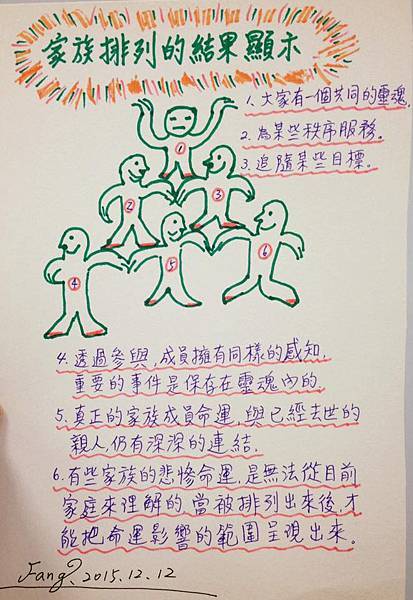 家族排列的結果顯示
1. 大家有一個共同的靈魂,
2. 為某些秩序服務。
3. 追隨某些目標。
1
2
3
4
5
6
4. 透過參與,成員擁有同樣的感知,
重要的事件是保存在靈魂內的.
5. 真正的家族成員命運,與已經去世的
親人,仍有深深的連結,
6. 有些家族的悲慘命運,是無法從目前
家庭來理解的,當被排列出來後,才
能把命運影響的範圍呈現出來。
Fang 2015.12.12